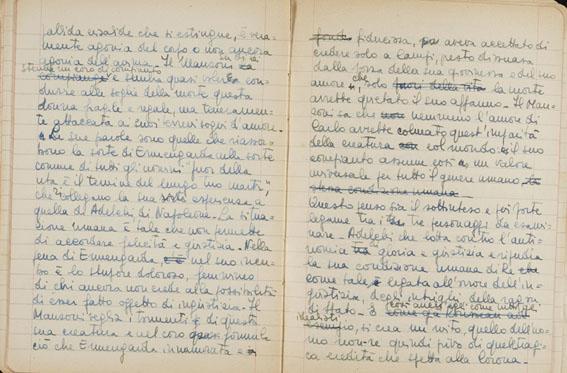 pallida iridale che si estingue, è vera-
mente agonia del corpo e non ancora
agonia dell'anima. Il Manzoni su di
stende un coro di compianto
compiange e sembra quasi con-
durre alle soglie della morte questa
donna fragile e regale, ma teneramen-
te attaccata ai suoi sogni d'amore.
Le sue parole sono quelle che riassu-
mono la sorte di Ermengarda nella sorte
comune di tutti gli uomini "fuor della
vita è il termine del lungo tuo martir",
che ricollegano la sua esperienza a
quella di Adelchi di Napoleone. La situa-
zione umana è tale che non permette
di accordare felicità e giustizia. Nella
pena di Ermengarda, nel suo incu-
bo è lo stupore doloroso, femminino
di chi ancora non crede alla possibilità
di esser fatto oggetto di ingiustizia. Il
Manzoni scioglie i tormenti di questa
sua creatura e nel coro formula
ciò che Ermengarda innamorata e
fiduciosa, aveva accettato di
credere solo a lampi, presto dissuasa
dalla forza della sua giovinezza e del suo
amore, che solo fuori della vita la morte
avrebbe quetato il suo affanno. Il Man-
zoni sa che nemmeno l'amore di
Carlo avrebbe colmato quest'infinità
della creatura col mondo e il suo
compianto assume così un valore
universale per tutto il genere umano
stessa condizione umana
Questo penso sia il sottinteso e più forte
legame tra i tre personaggi da esami-
nare. Adelchi che lotta contro l'anti-
nomia di gloria e giustizia e ripudia
la sua condizione umana di Re
come tale è legata all'orrore dell'in-
giustizia, degli intrighi della ragion
di stato.
si crea un mito, quello dell'uo-
mo non-re quindi privo di quell'tragi-
ca eredità che spetta alla Corona.